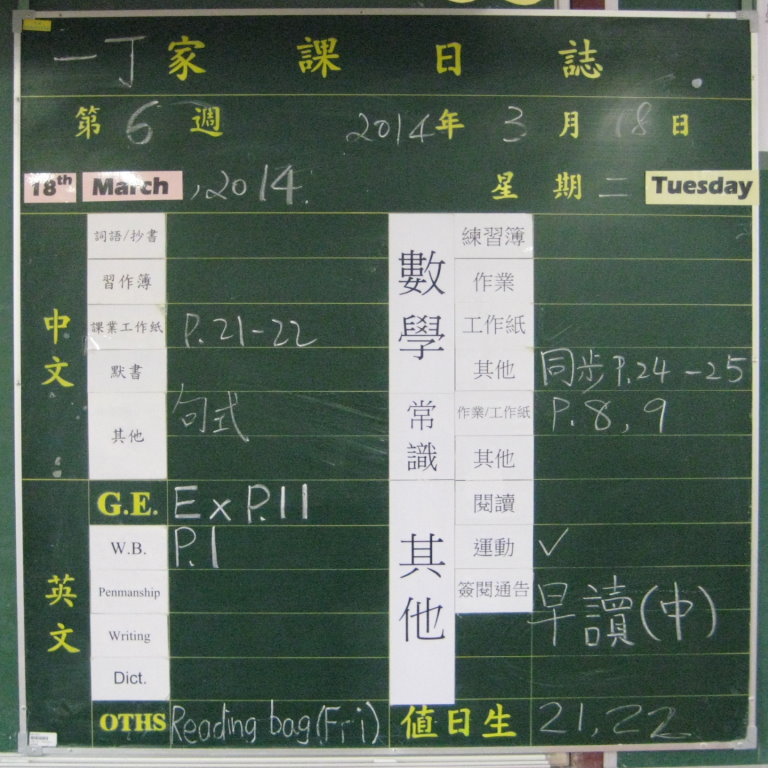 一丁家課日誌
第6週 2014年3月18日
18th March, 2014. 星期二 Tuesday
中文
詞語/抄書
習作簿
課業工作紙 P.21-22
默書
其他 句式
英文
G.E. Ex P.11
W.B. P.1
Penmanship
Writing
Dict.
OTHS Reading bag (Fri)
數學
練習簿
作業
工作紙
其他 同步P.24-25
常識
作業/工作紙 P.8, 9
其他
其他
閱讀
運動 ✓
簽閱通告
早讀(中)
值日生 21, 22